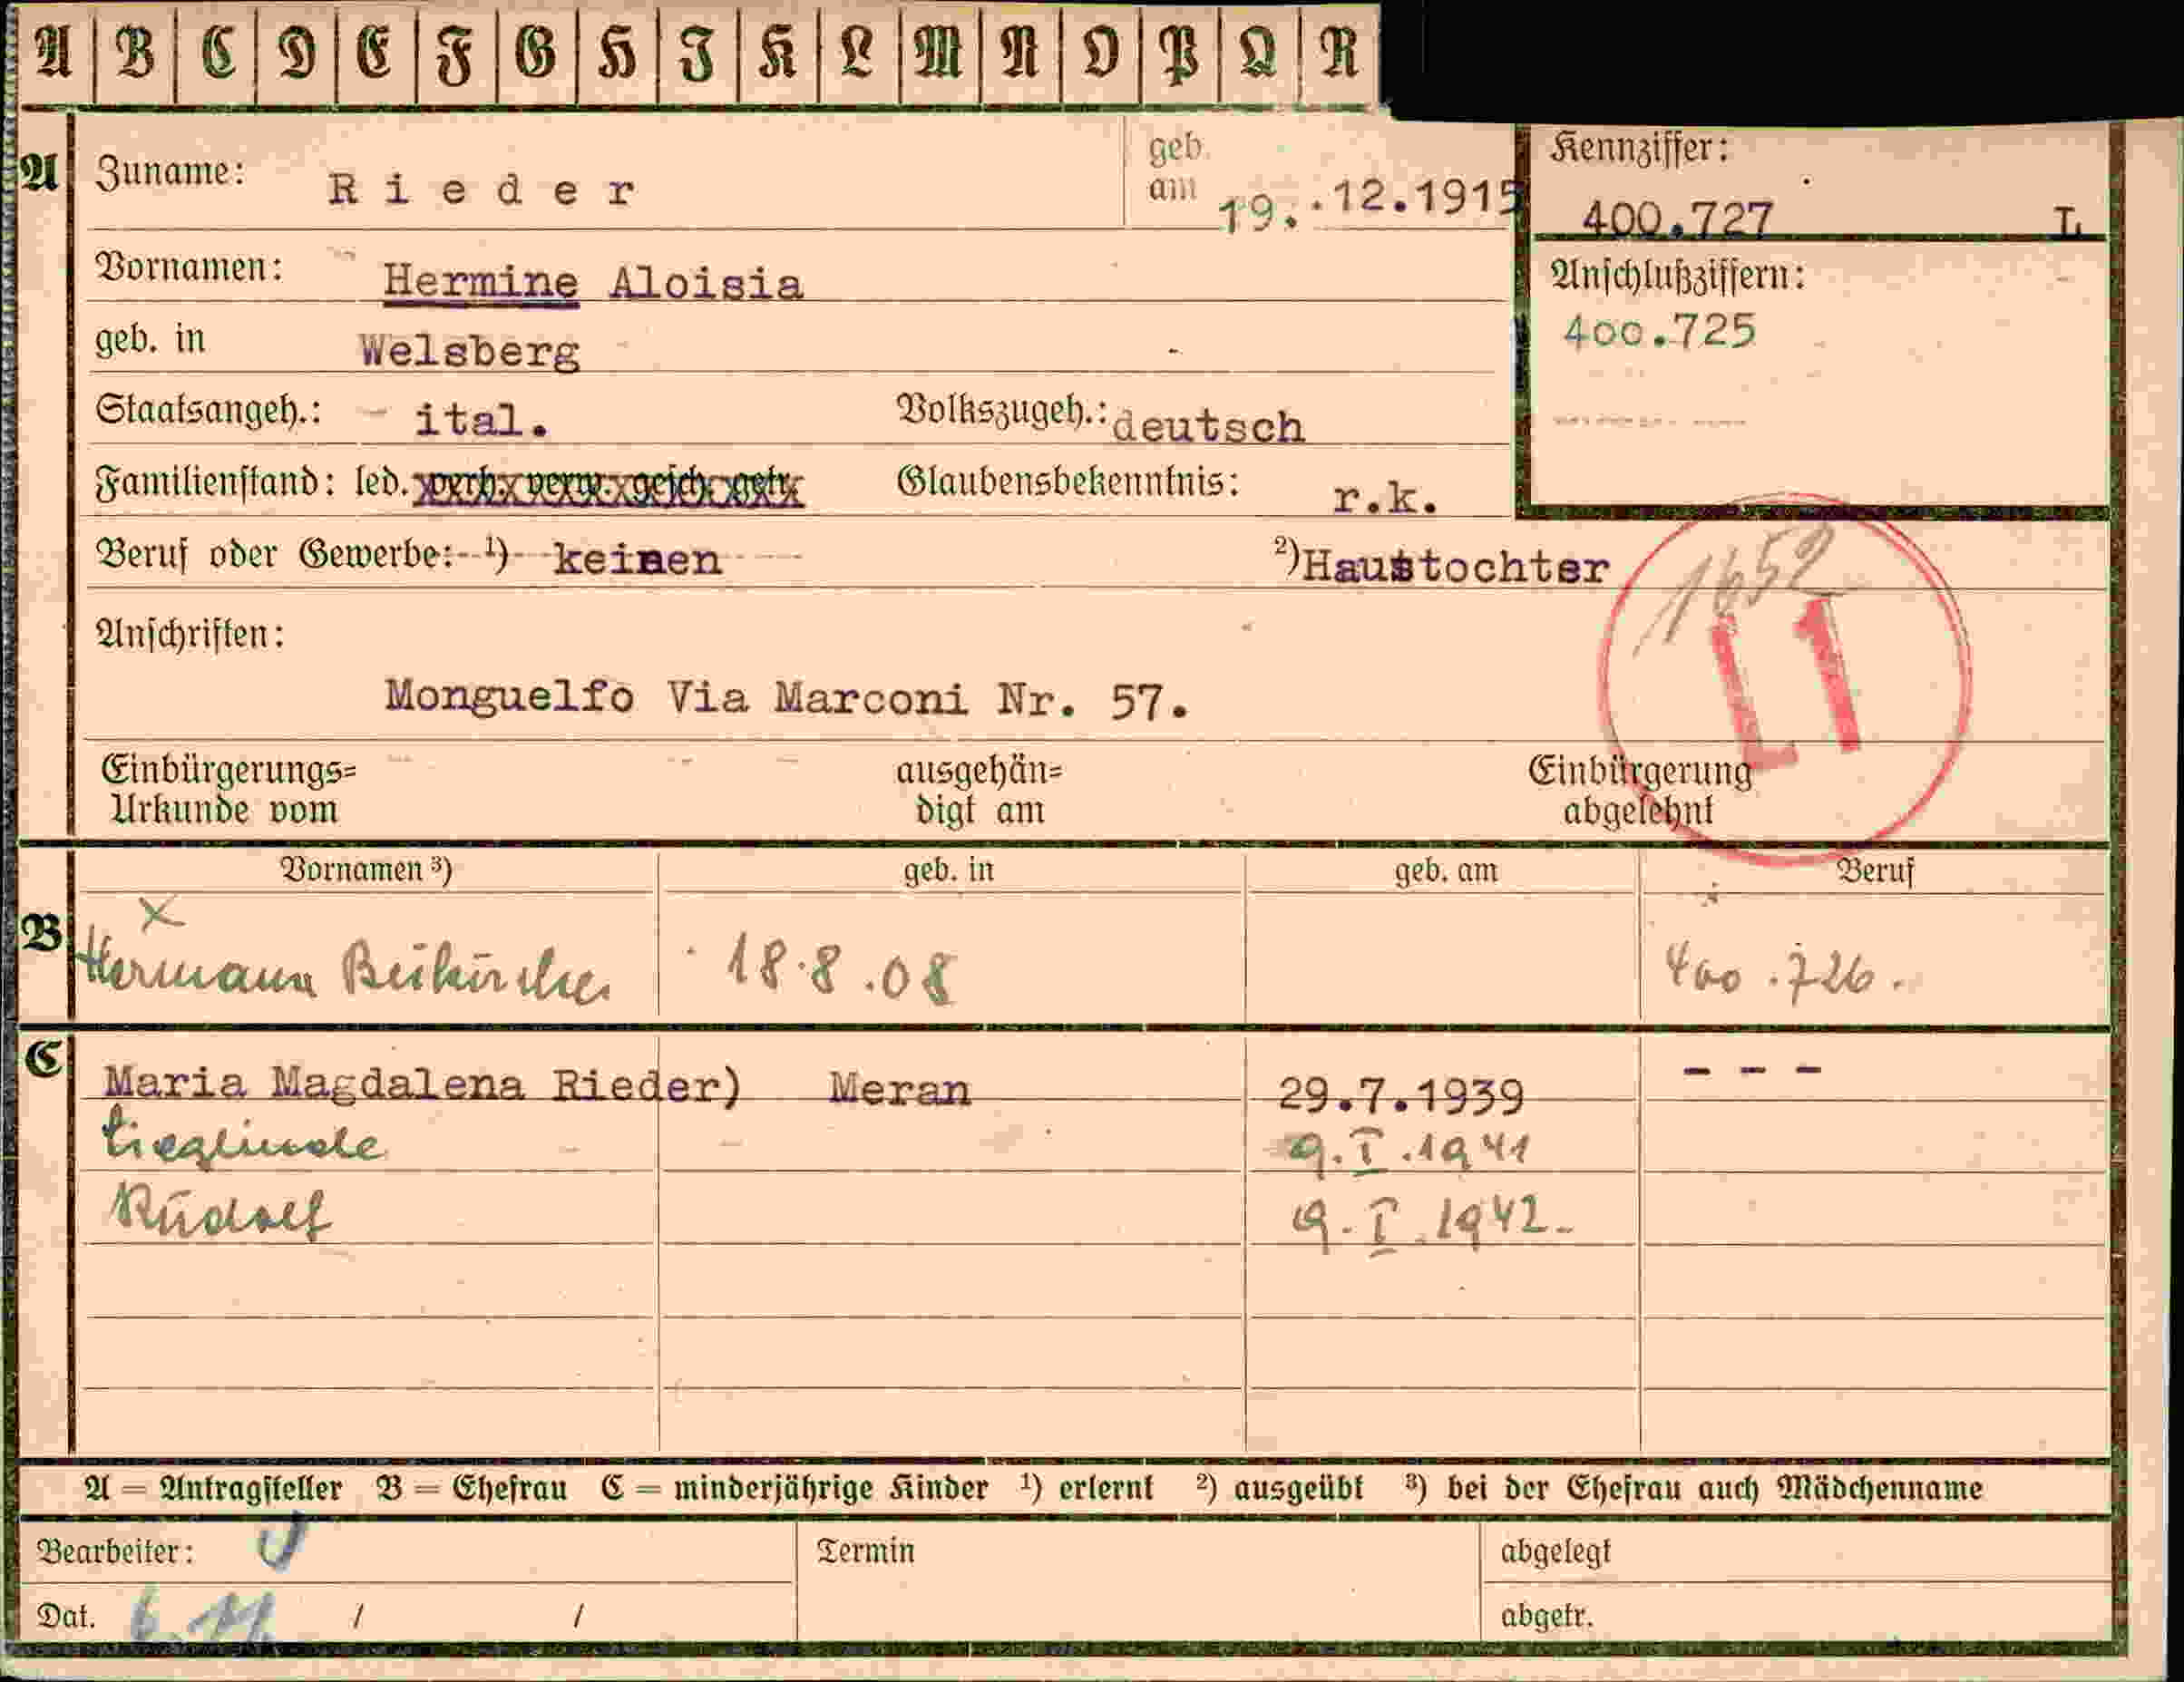 A B C D E F G H I K L M N O P Q R
A Zuname: Rieder geb. am 19..12.1915
Kennziffer:
400.727 L
Vornamen: Hermine Aloisia
Anschlußziffern:
400.725
geb. in Welsberg
Staatsangeh.: ital. Volkszugeh.: deutsch
Familienstand: led. verh. verw. gesch. getr. Glaubensbekenntnis: r.k.
Beruf oder Gewerbe: ¹) keinen ²) Haustochter
1652
L1
Anschriften:
Monguelfo Via Marconi Nr. 57.
Einbürgerungs= ausgehän= Einbürgerung
Urkunde vom digt am abgelehnt
Vornamen ³) geb. in geb. am Beruf
x
B Hermann Beikircher 18.8.08 400.726.
C Maria Magdalena Rieder) Meran 29.7.1939 - - -
Sieglinde 9.I.1941
Rudolf 9.I.1942.
A = Antragsteller B = Ehefrau C = minderjährige Kinder ¹) erlernt ²) ausgeübt ³) bei der Ehefrau auch Mädchenname
Bearbeiter: Termin abgelegt
Dat. / / abgetr.